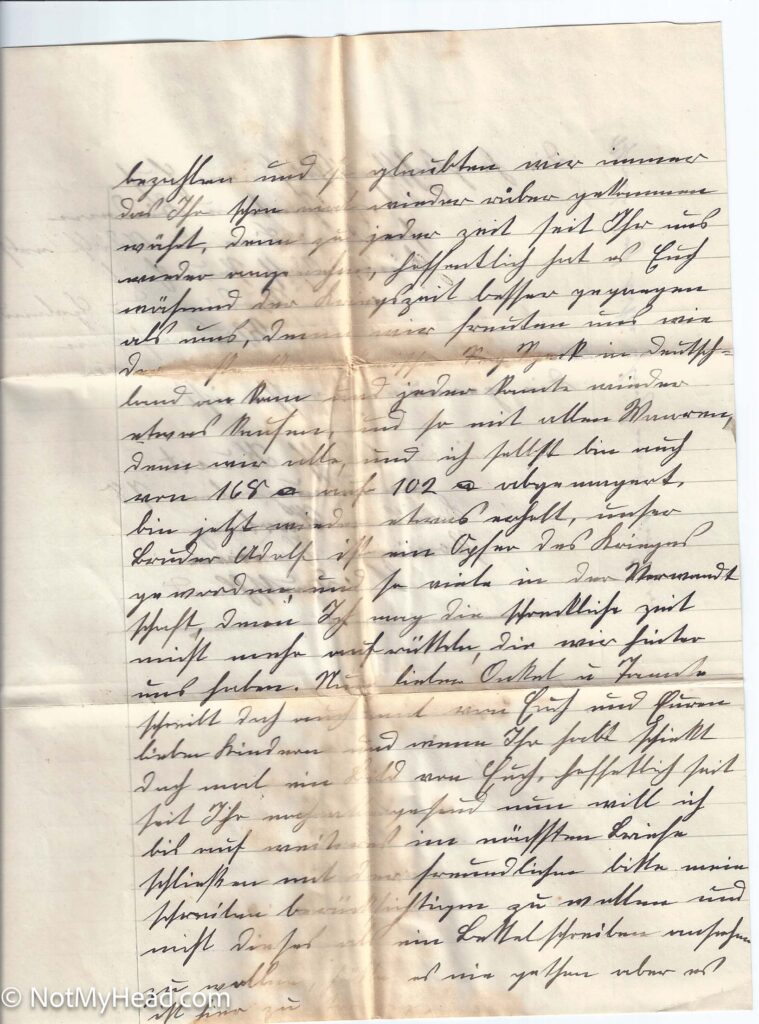 bezahlen und so glaubten wir immer
das Ihr schon mal wieder rüber gekommen
währt, denn zu jeder zeit seit Ihr uns
wieder angenehm, hoffentlich hat es Euch
während der Kriegszeit besser gegangen
als uns, denn wir freuten uns wie
in Deutsch=
land an kam und jeder konnte wieder
etwas kaufen, und so mit allen Waaren,
denn wir alle, und ich selbst bin auch
von 168 auf 102 abgemagert,
bin jetzt wieder etwas erholt, unser
Bruder Adolf ist ein Opfer des Krieges
geworden, und so viele in der Verwandt
schaft, denn Ich mag die schreckliche zeit
nicht mehr auf rütteln, die wir hinter
uns haben. Nun lieber Onkel u Tante
schreibt doch auch mal von Euch und Euren
lieben Kindern und wenn Ihr habt schickt
doch mal ein Bild von Euch, hoffetlich seit
seit Ihr noch alle gesund nun will ich
bis auf weiteres im nächsten Briefe
schließen mit der freundlichen bitte mein
schreiben berücksichtigen zu wollen und
nicht dieses als ein Bettelschreiben ansehen
zu wollen, es nie gethan aber es
ist hier zu
© NotMyHead.com